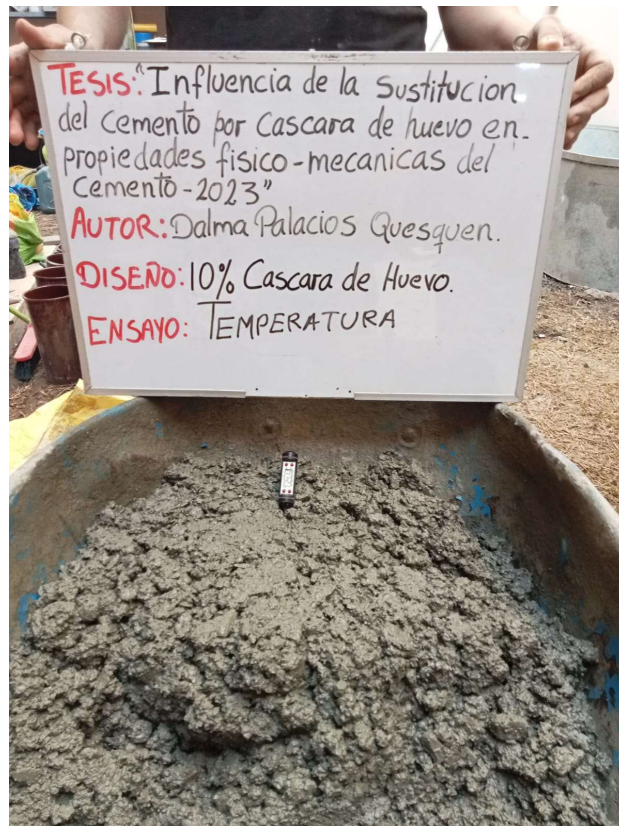 TESIS: "Influencia de la Sustitucion
del cemento por Cascara de huevo en-
propiedades fisico-mecanicas del
Cemento-2023"
AUTOR: Dalma Palacios Quesquen.
DISEÑO: 10% Cascara de Huevo.
ENSAYO: TEMPERATURA